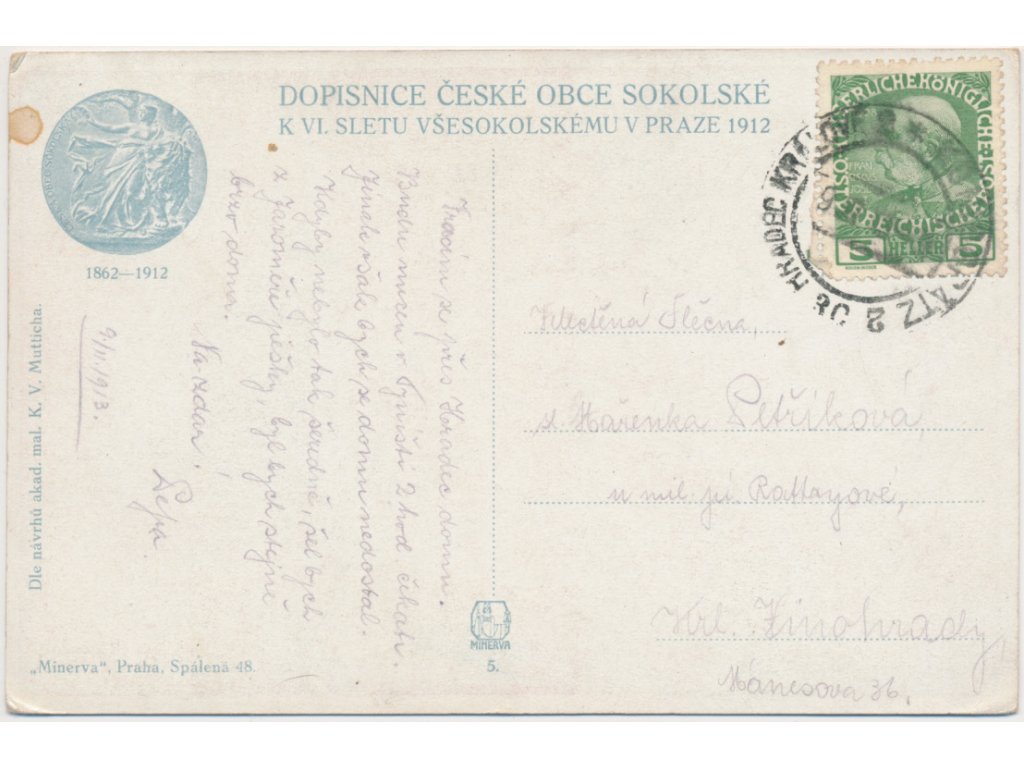 DOPISNICE ČESKÉ OBCE SOKOLSKÉ
K VI. SLETU VŠESOKOLSKÉMU V PRAZE 1912
1862—1912
Dle návrhů akad. mal. K. V. Mutticha.
„Minerva“, Praha, Spálená 48.
MINERVA
5.
HRADEC KRÁLOVÉ 2
5 HELLER 5
Vracím se přes Hradec domů.
Budu nucen v Týništi 2 hod čekati.
Jinak však bych se domů nedostal.
Kdyby nebylo tak šeredně, šel bych
z Jaroměře pěšky, byl bych stejně
brzo doma.
Na zdar!
Pepa.
1913.
Velectěná Slečna,
sl Mařenka Petříková,
u mil. pí Rattayové,
Král. Vinohrady
Mánesova 36.